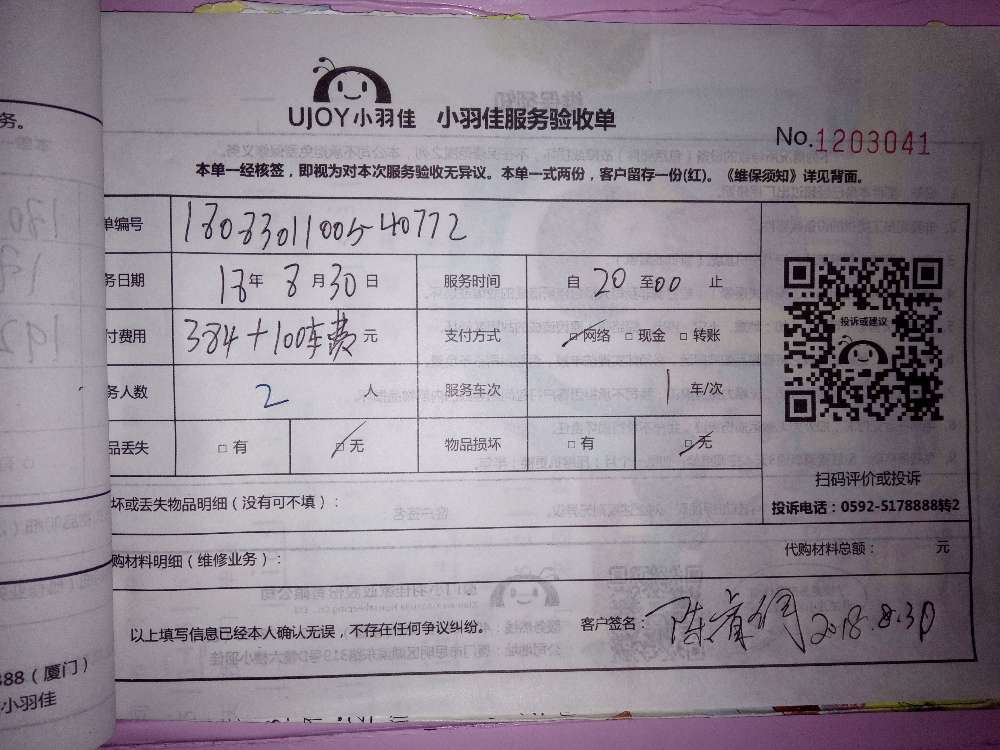 务。
UJOY小羽佳 小羽佳服务验收单
No.1203041
本单一经核签，即视为对本次服务验收无异议。本单一式两份，客户留存一份(红)。《维保须知》详见背面。
单编号 18083011005-40772
务日期 18年 8月30日 服务时间 自 20 至00 止
付费用 384+100车费元 支付方式 □网络 □现金 □转账
务人数 2 人 服务车次 1 车/次
品丢失 □有 □无 物品损坏 □有 □无
投诉或建议
扫码评价或投诉
投诉电话：0592-5178888转2
坏或丢失物品明细（没有可不填）：
购材料明细（维修业务）： 代购材料总额： 元
以上填写信息已经本人确认无误，不存在任何争议纠纷。 客户签名： 2018.8.30
388（厦门）
小羽佳